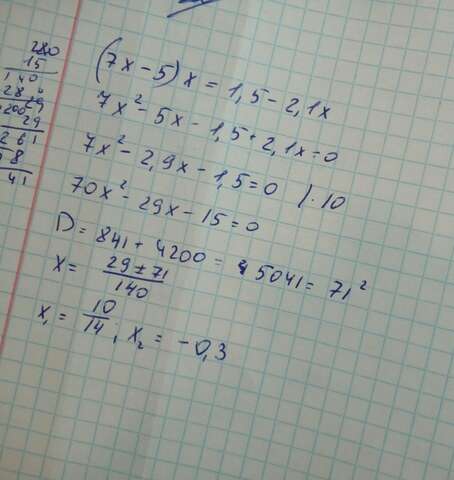 280
15
140
28
29
29
261
8
41
(7x-5)x = 1,5 - 2,1x
7x² - 5x - 1,5 + 2,1x = 0
7x² - 2,9x - 1,5 = 0 /·10
70x² - 29x - 15 = 0
D = 841 + 4200 = 5041 = 71²
x = (29 ± 71)/140
x₁ = 10/14; x₂ = -0,3